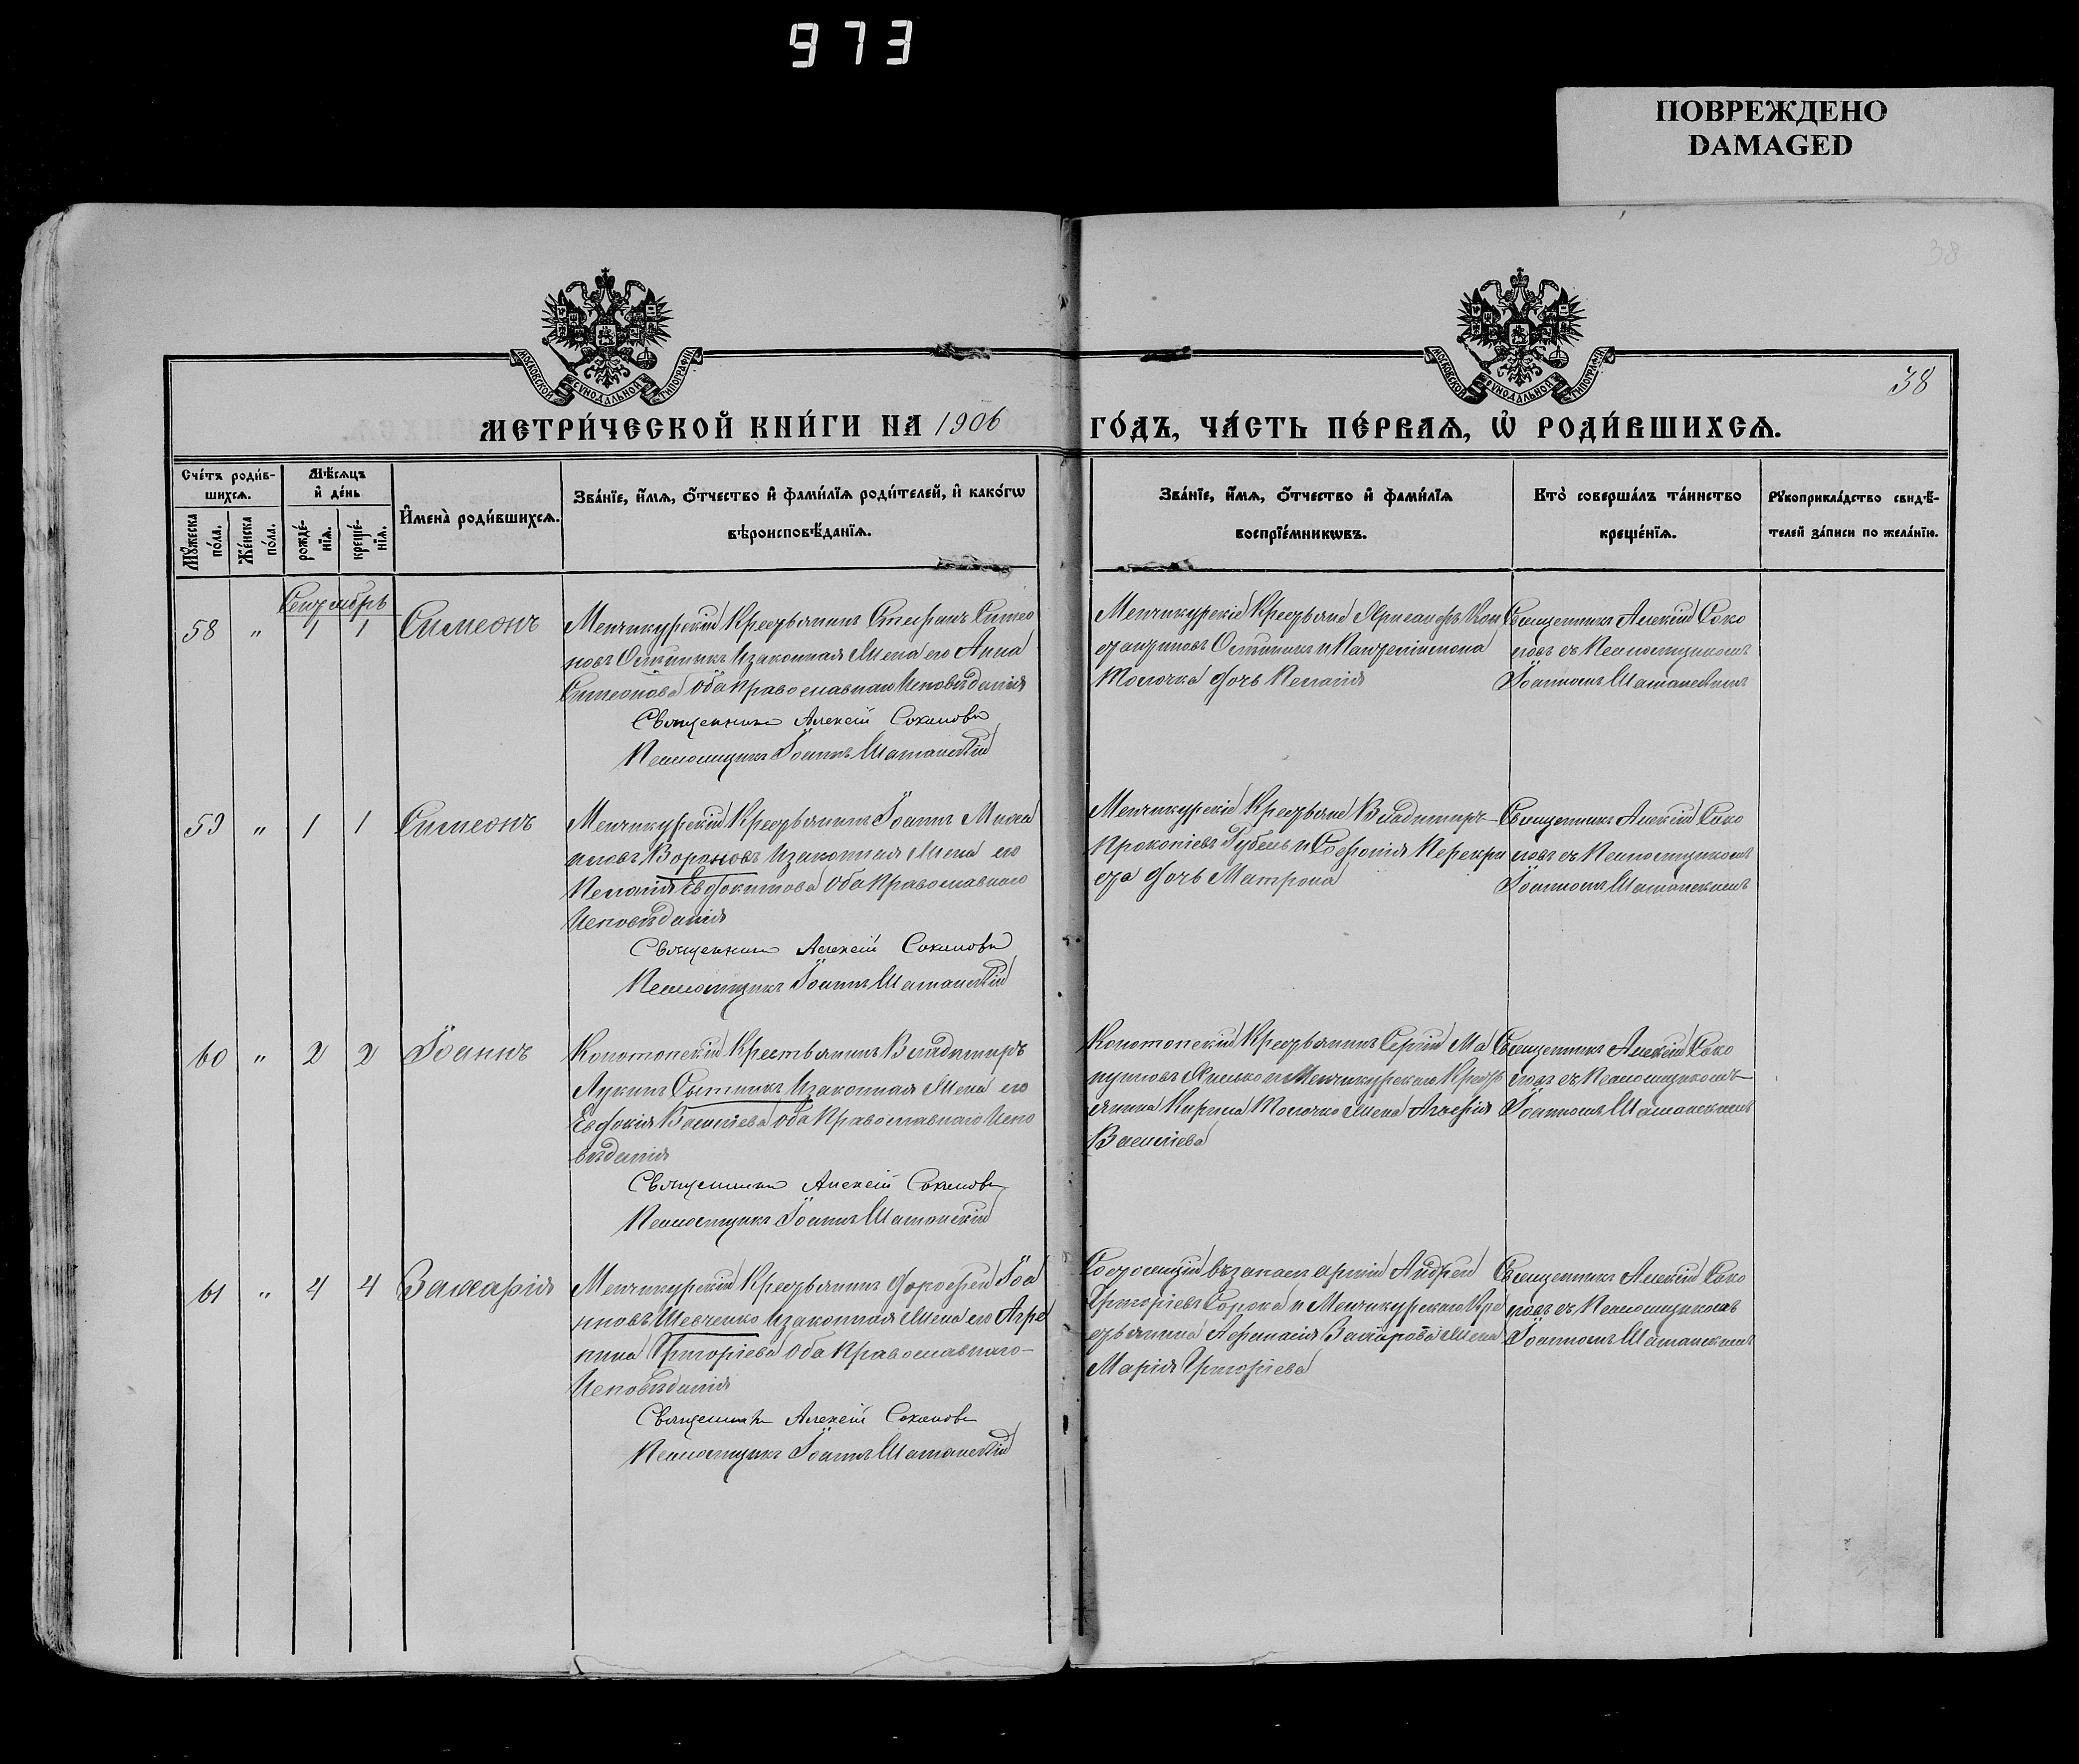 973
ПОВРЕЖДЕНО
DAMAGED
38
МОСКОВСКОЙ СѴНОДАЛЬНОЙ ТИПОГРАФІИ
МОСКОВСКОЙ СѴНОДАЛЬНОЙ ТИПОГРАФІИ
38
МЕТРИ́ЧЕСКОЙ КНИ́ГИ НА 1906 ГО́ДЪ, ЧА́СТЬ ПЕ́РВАѦ, Ѡ҆ РОДИ́ВШИХСѦ.
Сче́тъ роди́в-
шихсѧ.
Мѣ́сѧцъ
и҆ де́нь
Мꙋ́жеска
по́ла.
Же́нска
по́ла.
рожде́-
нїѧ.
креще́-
нїѧ.
И҆мена̀ роди́вшихсѧ.
Зва́нїе, и҆́мѧ, ѻ҆́тчество и҆ фами́лїѧ роди́телей, и҆ како́гѡ
вѣроисповѣ́данїѧ.
Зва́нїе, и҆́мѧ, ѻ҆́тчество и҆ фами́лїѧ
воспрїе́мникѡвъ.
Кто̀ соверша́лъ та́инство
креще́нїѧ.
Рꙋкоприкла́дство свидѣ́-
телей за́писи по жела́нїю.
Сентябрь
58 " 1 1 Симеонъ
Менчикурскій Крестьянинъ Стефанъ Симео
новъ Олійникъ И законная Жена его Анна
Симеонова Оба Православнаго Исповѣданія
Священникъ Алексій Соколовъ
Псаломщикъ Іоаннъ Шаманскій
Менчикурскіе Крестьяне Александръ Кон
стантиновъ Олійникъ и Пантелеимона
Молочка дочь Пелагія
Священникъ Алексій Соко
ловъ съ Псаломщикомъ
Іоанномъ Шаманскимъ
59 " 1 1 Симеонъ
Менчикурскій Крестьянинъ Іоаннъ Миха
иловъ Вороновъ И законная Жена его
Пелагія Евдокимова Оба Православнаго
Исповѣданія
Священникъ Алексій Соколовъ
Псаломщикъ Іоаннъ Шаманскій
Менчикурскіе Крестьяне Владимиръ
Прокопіевъ Губень и Софронія Перекри
ста дочь Матрона
Священникъ Алексій Соко
ловъ съ Псаломщикомъ
Іоанномъ Шаманскимъ
60 " 2 2 Іоаннъ
Конотопскій Крестьянинъ Владимиръ
Лукинъ Сытникъ И законная Жена его
Евдокія Васильева Оба Православнаго Испо
вѣданія
Священникъ Алексій Соколовъ
Псаломщикъ Іоаннъ Шаманскій
Конотопскій Крестьянинъ Сергій Ма
и Менчикурскаго Кресть
янина Кирила Молочко Жена Агафія
Васильева
Священникъ Алексій Соко
ловъ съ Псаломщикомъ
Іоанномъ Шаманскимъ
61 " 4 4 Захарія
Менчикурскій Крестьянинъ Дорофей Іоа
нновъ Шевченко И законная Жена его Агре
пина Григоріева Оба Православнаго
Исповѣданія
Священникъ Алексій Соколовъ
Псаломщикъ Іоаннъ Шаманскій
Состоящій въ запасѣ арміи Андрей
Григоріевъ Сорока и Менчикурскаго Кре
стьянина Афанасія Жена
Марія Григоріева
Священникъ Алексій Соко
ловъ съ Псаломщикомъ
Іоанномъ Шаманскимъ